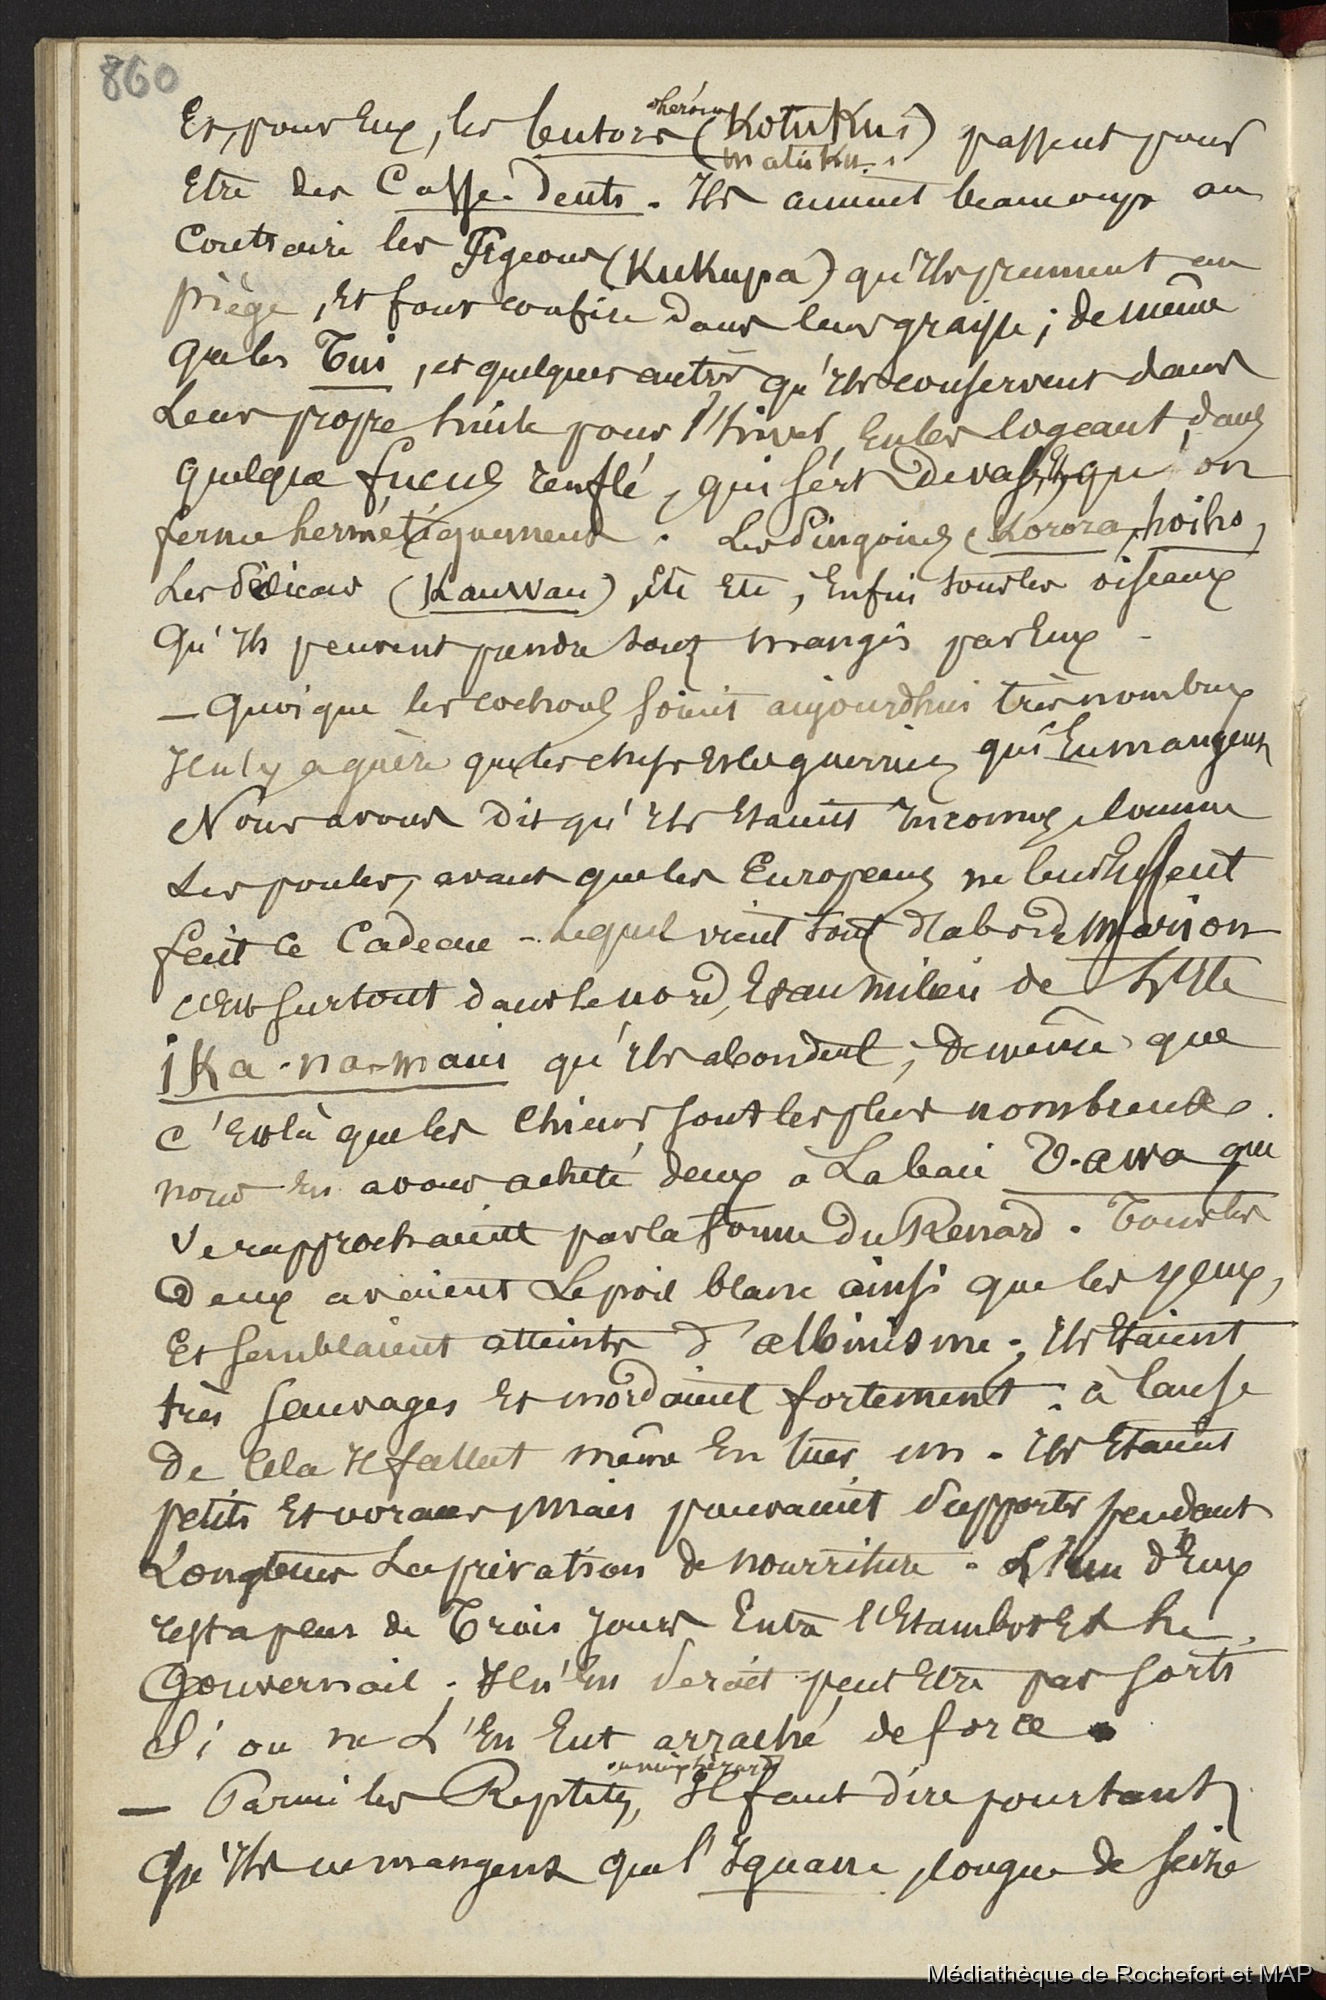 860
Et, pour Eux, les butors (Kotukus) passent pour
hérons
matuku
Etre des Casse-dents. Ils aiment beaucoup au
Contraire les Pigeons (Kukupa) qu'ils prennent au
piège, Et font confire dans leur graisse; de même
que les Tui, et quelques autres qu'ils conservent dans
Leur propre huile pour l'hiver, En les logeant, dans
quelque fucus renflé, qui sert de vase, Et qu'on
ferme hermétiquement. Les Pingouins (Korora, hoiho,
Les Pélicans (Kauwau), Etc Etc, Enfin tous les oiseaux
Qu'Ils peuvent prendre sont mangés par Eux -
— Quoique les cochons soient aujourdhui très nombreux
Il n'y a guère que les chefs Et les guerriers qui En mangent
Nous avons dit qu'Ils Etaient Inconnus, Comme
Les poules, avant que les Européens ne leur Eussent
fait Ce Cadeau - Lequel vient tout d'abord Marion
C'Est surtout dans le nord, Et au milieu de L'Ile
ika-na-mawi qu'Ils abondent, de même que
C'Est là que les Chiens sont les plus nombreux.
nous En avons acheté deux à La baie T-awa qui
se rapprochaient par la forme du Renard. Tous les
Deux avaient Le poil blanc ainsi que les yeux,
Et semblaient atteints d'albinisme; Ils Etaient
très sauvages Et mordaient fortement. à Cause
de Cela Il fallut même En tuer un. Ils Etaient
petits Et voraces, Mais pouvaient Supporter pendant
Longtems La privation de nourriture. L'un d'Eux
resta près de Trois Jours Entre l'Etambot Et Le
Gouvernail. Il n'En serait peut Etre pas sorti
Si on ne L'En Eut arraché de force.
— Parmi les Reptiles, Il faut dire pourtant
Qu'Ils ne mangent que l'Iguane, longue de seize
Médiathèque de Rochefort et MAP